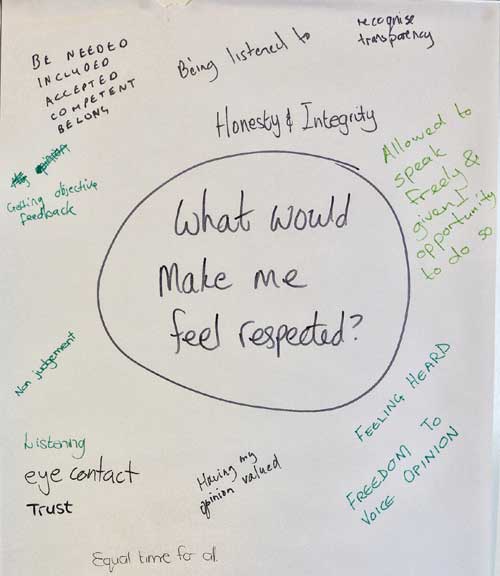 BE NEEDED
INCLUDED
ACCEPTED
COMPETENT
BELONG
Being listened to
recognise
transparency
Honesty & Integrity
Allowed to
speak
freely &
given
opportunity
to do so
Getting objective
feedback
What would
Make me
feel respected?
Non judgement
FEELING HEARD
FREEDOM TO
VOICE OPINION
Listening
eye contact
Trust
Having my
opinion valued
Equal time for all.